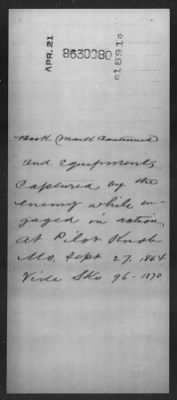 APR. 21
8630080
1891
Book Mark Continued
and Equipments
Captured by the
enemy while en-
gaged in action
at Pilot Knob
Mo. Sept 27. 1864
Vide Sks 96-1870